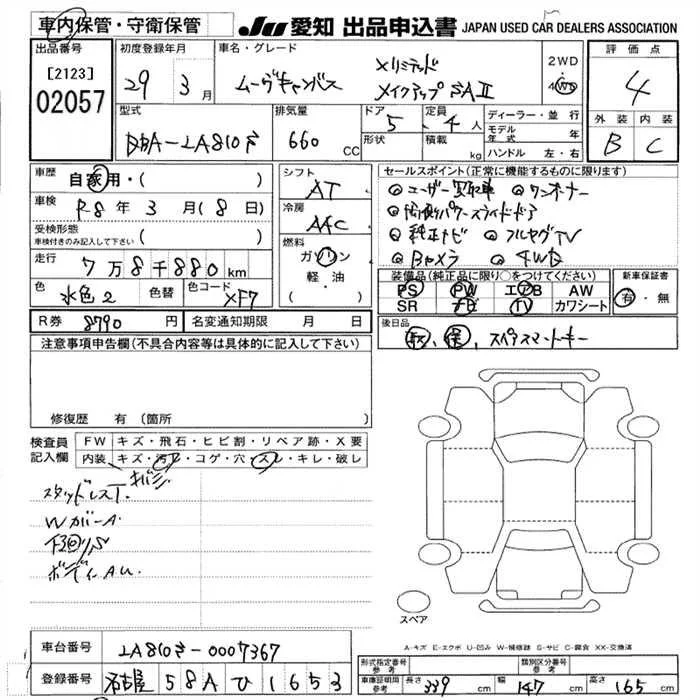 車内保管・守衛保管 JU 愛知 出品申込書 JAPAN USED CAR DEALERS ASSOCIATION
出品番号 [2123] 02057
初度登録年月 29 3月
車名・グレード ムーヴキャンバス Xリミテッド メイクアップ SAⅡ
2WD 4WD
評価点 4
外装 B 内装 C
型式 DBA-LA810S
排気量 660 CC
ドア 5 形状
定員 4人 積載 kg
ディーラー・並行
モデル年式 年
ハンドル 左・右
車歴 自家用・( )
車検 R8年3月(8日)
受検形態 車検付きのみ記入して下さい ( )
走行 7万8千880km
色 水色2 色替 色コード XF7
シフト AT
冷房 AAC
燃料 ガソリン 軽・油
セールスポイント(正常に機能するものに限ります)
◎ユーザー買取車 ◎ワンオーナー
◎両側パワースライドドア
◎純正ナビ ◎フルセグTV
◎Bカメラ ◎4WD
装備品(純正品に限り○をつけてください)
PS PW エアB AW
SR ナビ TV カワシート
新車保証書 有・無
R券 8790円 名変通知期限 月 日
後日品 取、保、スペアスマートキー
注意事項申告欄(不具合内容等は具体的に記入して下さい)
修復歴 有(箇所 )
検査員記入欄 FW キズ・飛石・ヒビ割・リペア跡・X要
内装 キズ・汚レ・コゲ・穴・スレ・キレ・破レ
スタッドレスT.
WカバーA.
下回リS
ボディAU.
スペア
A-キズ E-エクボ U-凹み W-補修跡 S-サビ C-腐食 XX-交換済
車台番号 LA810S-0007367
登録番号 名古屋 58A ひ 1653
形式指定番号 参考 類別区分番号 参考
車庫証明用 参考 長さ 339cm 幅 147cm 高さ 165cm